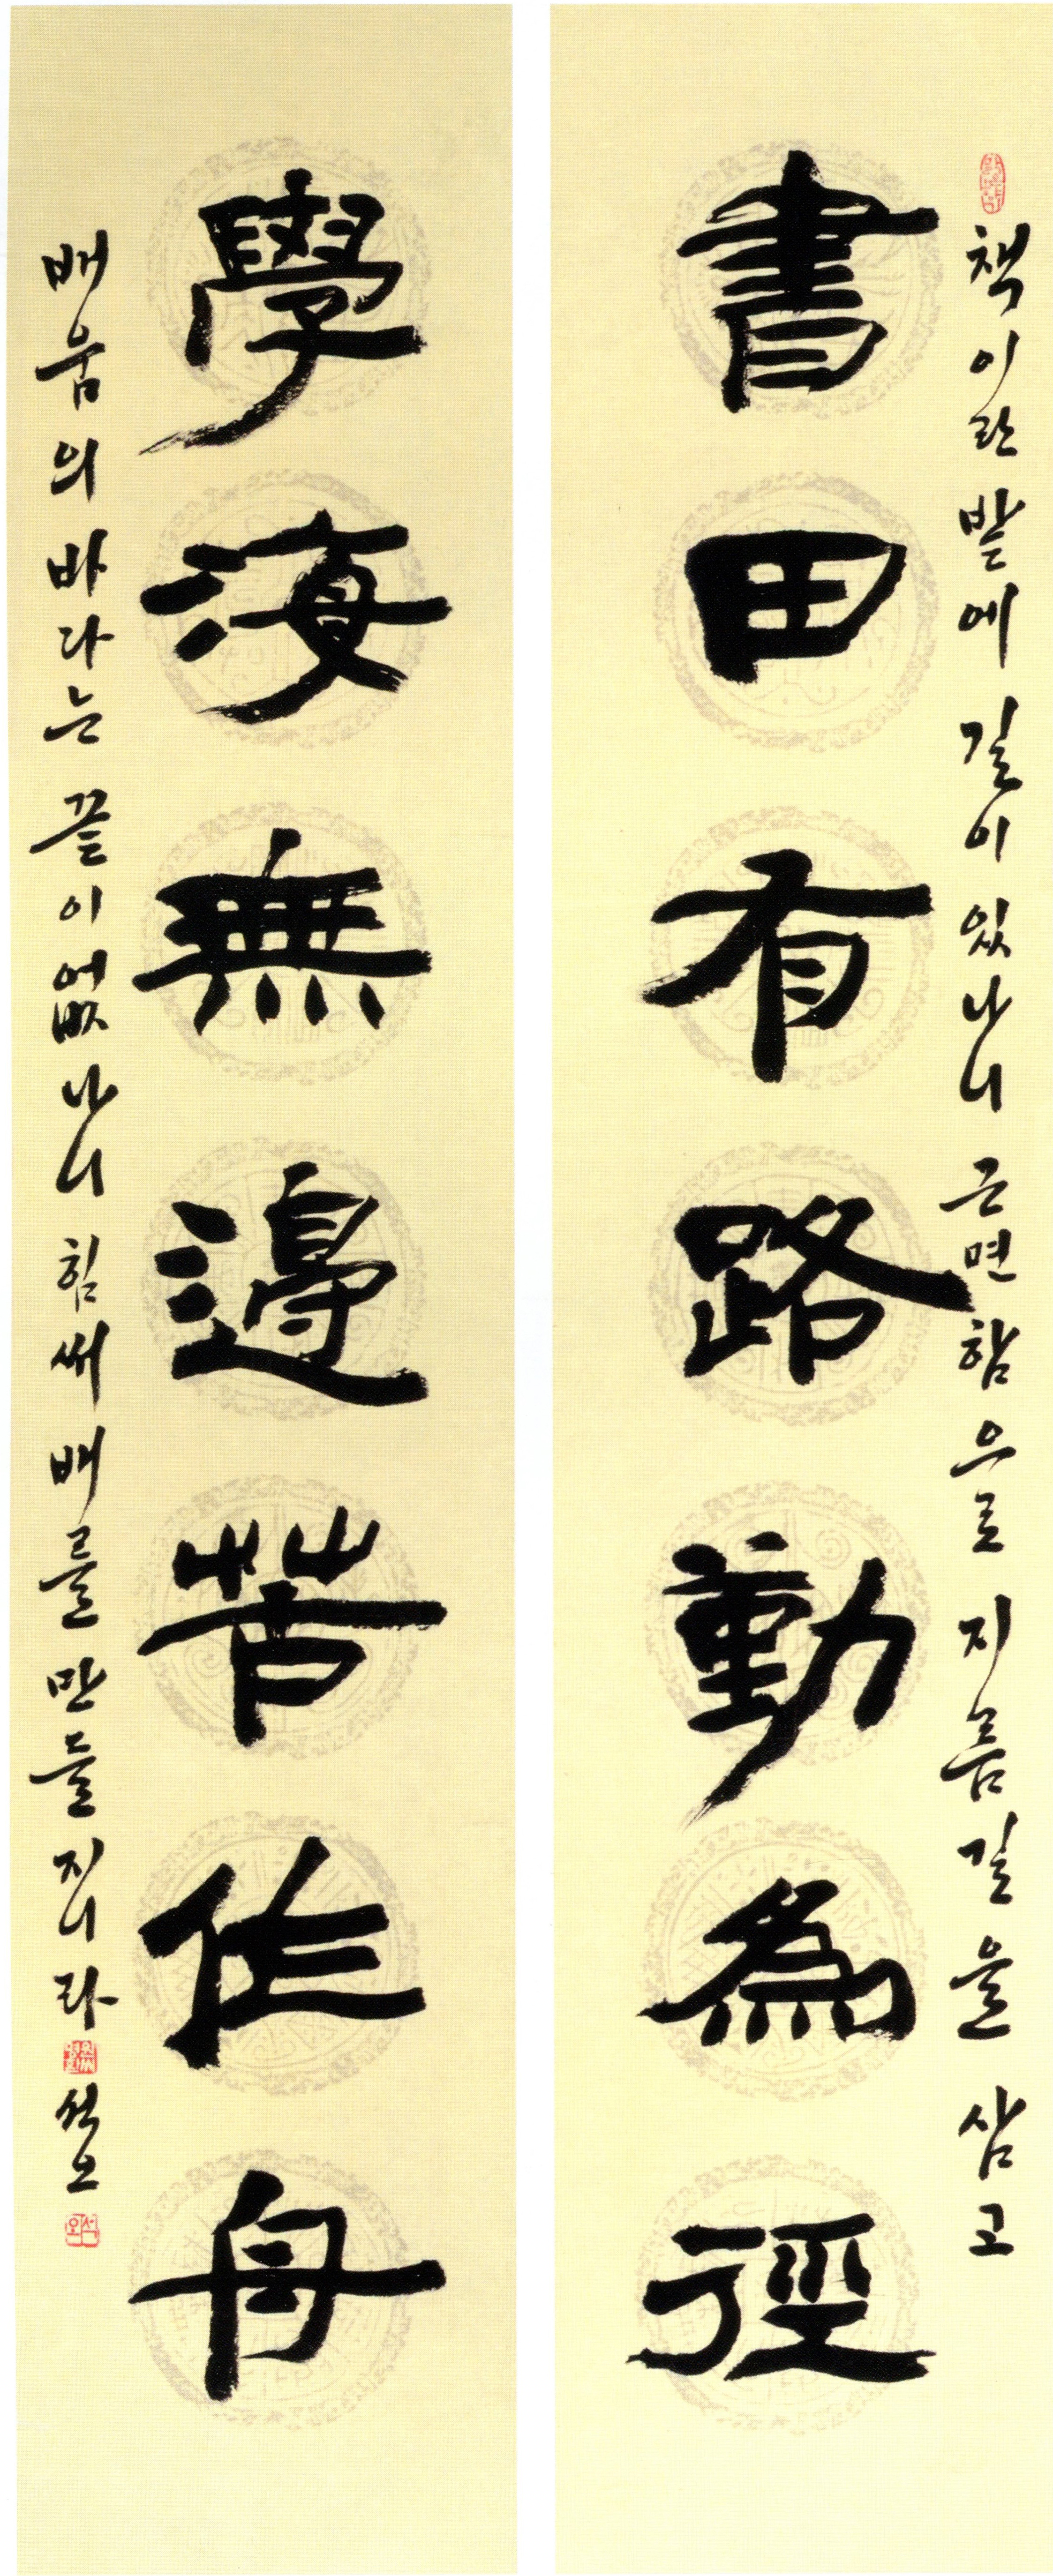 책이란 밭에 길이 있나니 근면함으로 지름길을 삼고
書田有路勤為徑
學海無邊苦作舟
배움의 바다는 끝이 없나니 힘써 배를 만들지니라 석오
석오